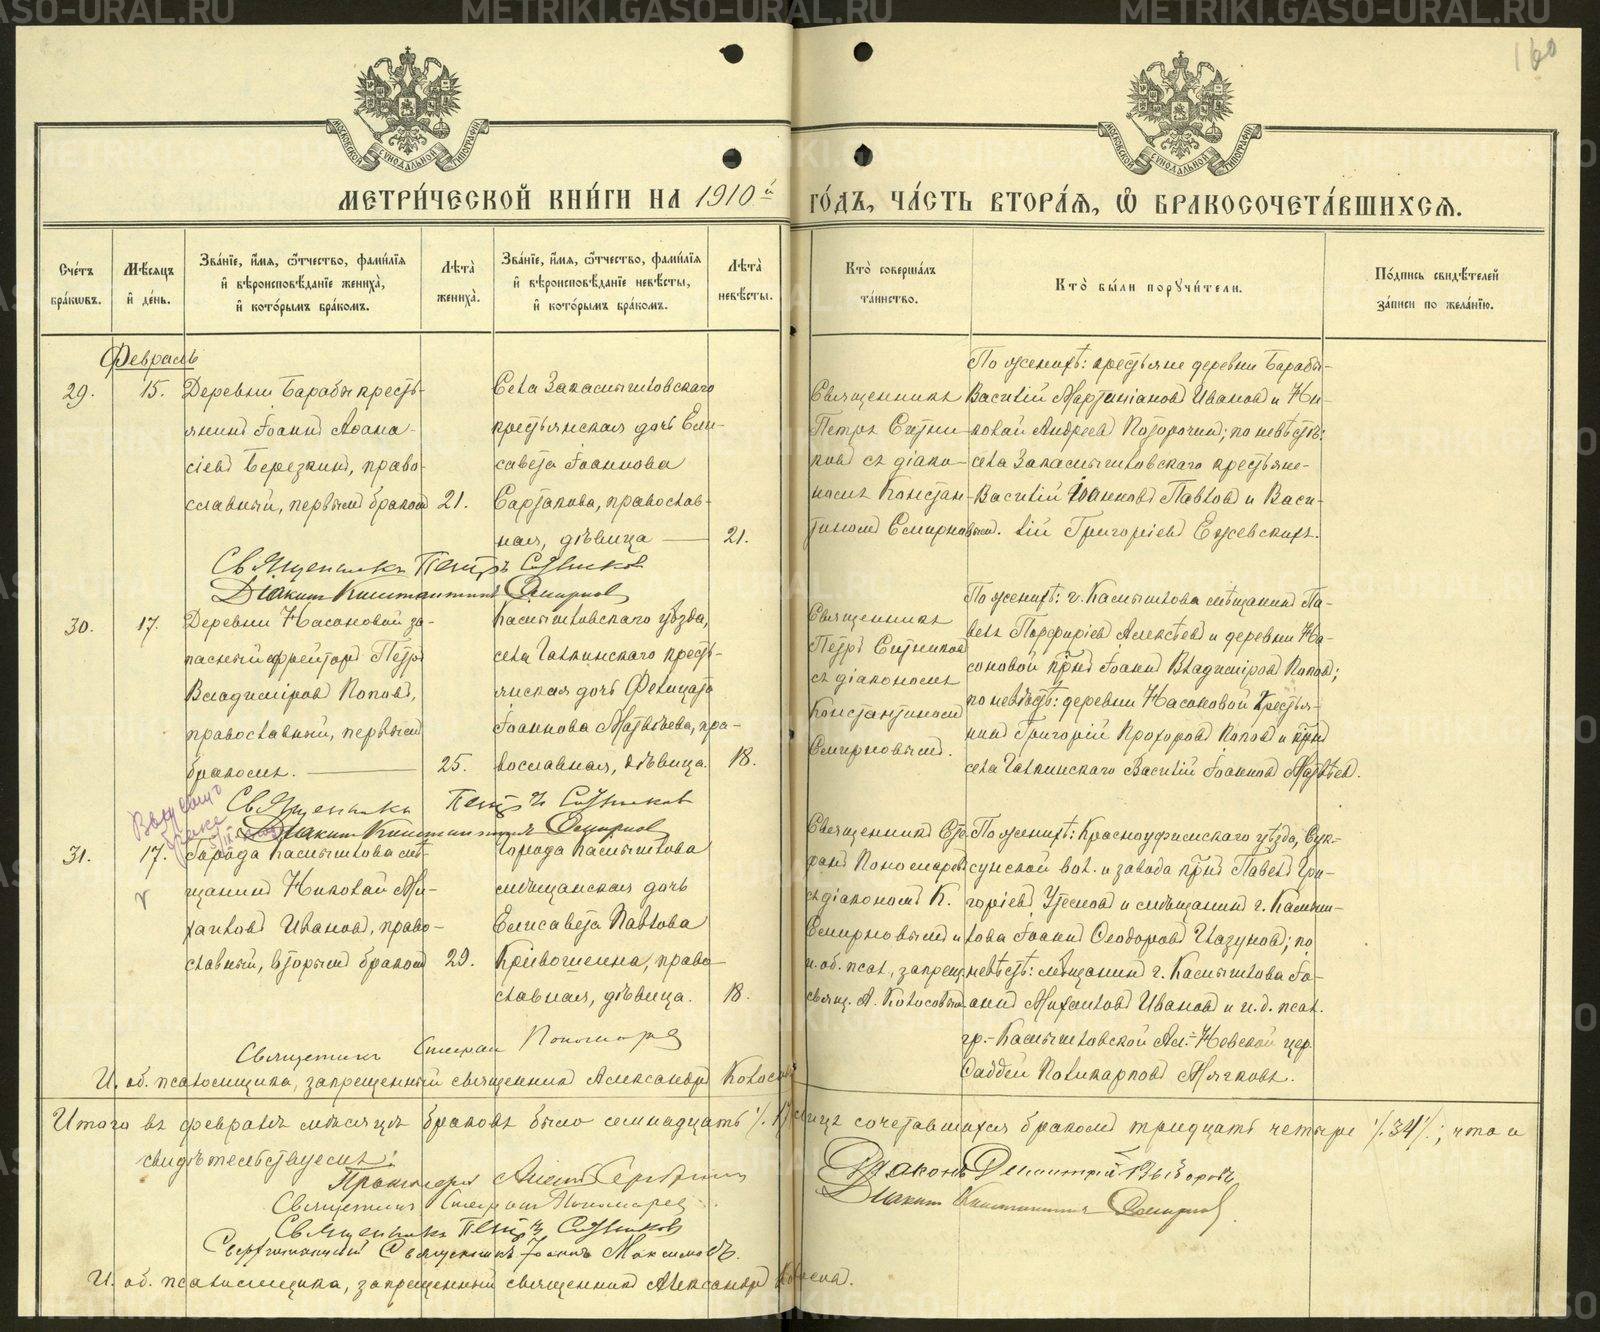 160
МОСКОВСКОЙ СѴНОДАЛЬНОЙ ТИПОГРАФІИ
МОСКОВСКОЙ СѴНОДАЛЬНОЙ ТИПОГРАФІИ
МЕТРИ́ЧЕСКОЙ КНИ́ГИ НА 1910й
ГО́ДЪ, ЧА́СТЬ ВТОРА́Я, Ѡ БРАКОСОЧЕТА́ВШИХСЯ.
Сче́тъ бра́кѡвъ.
Мѣ́сяцъ и҆ де́нь.
Зва́нїе, и҆́мя, ѻ҆́тчество, фами́лїя и҆ вѣроисповѣ́данїе жениха̀, и҆ кото́рымъ бра́комъ.
Лѣ́та жениха̀.
Зва́нїе, и҆́мя, ѻ҆́тчество, фами́лїя и҆ вѣроисповѣ́данїе невѣ́сты, и҆ кото́рымъ бра́комъ.
Лѣ́та невѣ́сты.
Кто̀ соверша́лъ та́инство.
Кто̀ бы́ли поручи́тели.
По́дпись свидѣ́телей за́писи по жела́нїю.
Февраль
29.
15.
Деревни Барабы кресть-
янинъ Іоаннъ Аѳана-
сіевъ Березкинъ, право-
славный, первымъ бракомъ
21.
Села Закамышловскаго
крестьянская дочь Ели-
савета Іоаннова
Сартакова, православ-
ная, дѣвица
21.
Священникъ
Петръ Ситни-
ковъ съ діако-
номъ Констан-
тиномъ Смирновымъ.
По женихѣ: крестьяне деревни Барабы-
Василій Мартиніановъ Ивановъ и Ни-
колай Андреевъ Поторочинъ; по невѣстѣ:
села Закамышловскаго крестьяне-
Василій Іоанновъ Павловъ и Васи-
лій Григоріевъ Ежевскихъ.
Священникъ Петръ Ситниковъ
Діаконъ Константинъ Смирновъ
30.
17.
Деревни Насоновой за-
пасный ефрейторъ Петръ
Владиміровъ Поповъ,
православный, первымъ
бракомъ.
25.
Камышловскаго уѣзда,
села Галкинскаго кресть-
янская дочь Фелицата
Іоаннова Матвѣева, пра-
вославная, дѣвица.
18.
Священникъ
Петръ Ситниковъ
съ діакономъ
Константиномъ
Смирновымъ.
По женихѣ: г. Камышлова мѣщанинъ Па-
велъ Порфиріевъ Алексѣевъ и деревни На-
соновой крнъ Іоаннъ Владиміровъ Поповъ;
по невѣстѣ: деревни Насоновой крестья-
нинъ Григорій Прохоровъ Поповъ и крнъ
села Галкинскаго Василій Іоанновъ Матвѣев.
Священникъ Петръ Ситниковъ
Діаконъ Константинъ Смирновъ
31.
17.
Города Камышлова мѣ-
щанинъ Николай Ми-
хаиловъ Ивановъ, право-
славный, вторымъ бракомъ
29.
Города Камышлова
мѣщанская дочь
Елисавета Павлова
Кривошеина, право-
славная, дѣвица.
18.
съ діакономъ К.
Смирновымъ и
и. об. псал., запрещ.
свящ. А. Колосовымъ
По женихѣ: Красноуфимскаго уѣзда, Сук-
сунской вол. и завода крнъ Павелъ Гри-
горіевъ Утесовъ и мѣщанинъ г. Камыш-
лова Іоаннъ Ѳеодоровъ Глазуновъ; по
невѣстѣ: мѣщанинъ г. Камышлова Іо-
аннъ Михаиловъ Ивановъ и и. д. псал.
гр.-Камышловской Ал.-Невской цер.
Ѳаддей Поликарповъ Мячковъ.
Священникъ Пономарев
И. об. псаломщика, запрещенный священникъ Александръ Колосовъ
Итого въ февралѣ мѣсяцѣ браковъ было семнадцать /.17./, лицъ сочетавшихся бракомъ тридцать четыре /.34./; что и
свидѣтельствуемъ:
Священникъ Пономарев
Священникъ Петръ Ситниковъ
Сверхштатный Священникъ Іоаннъ Максимовъ.
И. об. псаломщика, запрещенный священникъ Александръ Колосовъ.
Діаконъ Димитрій
Діаконъ Константинъ Смирновъ.